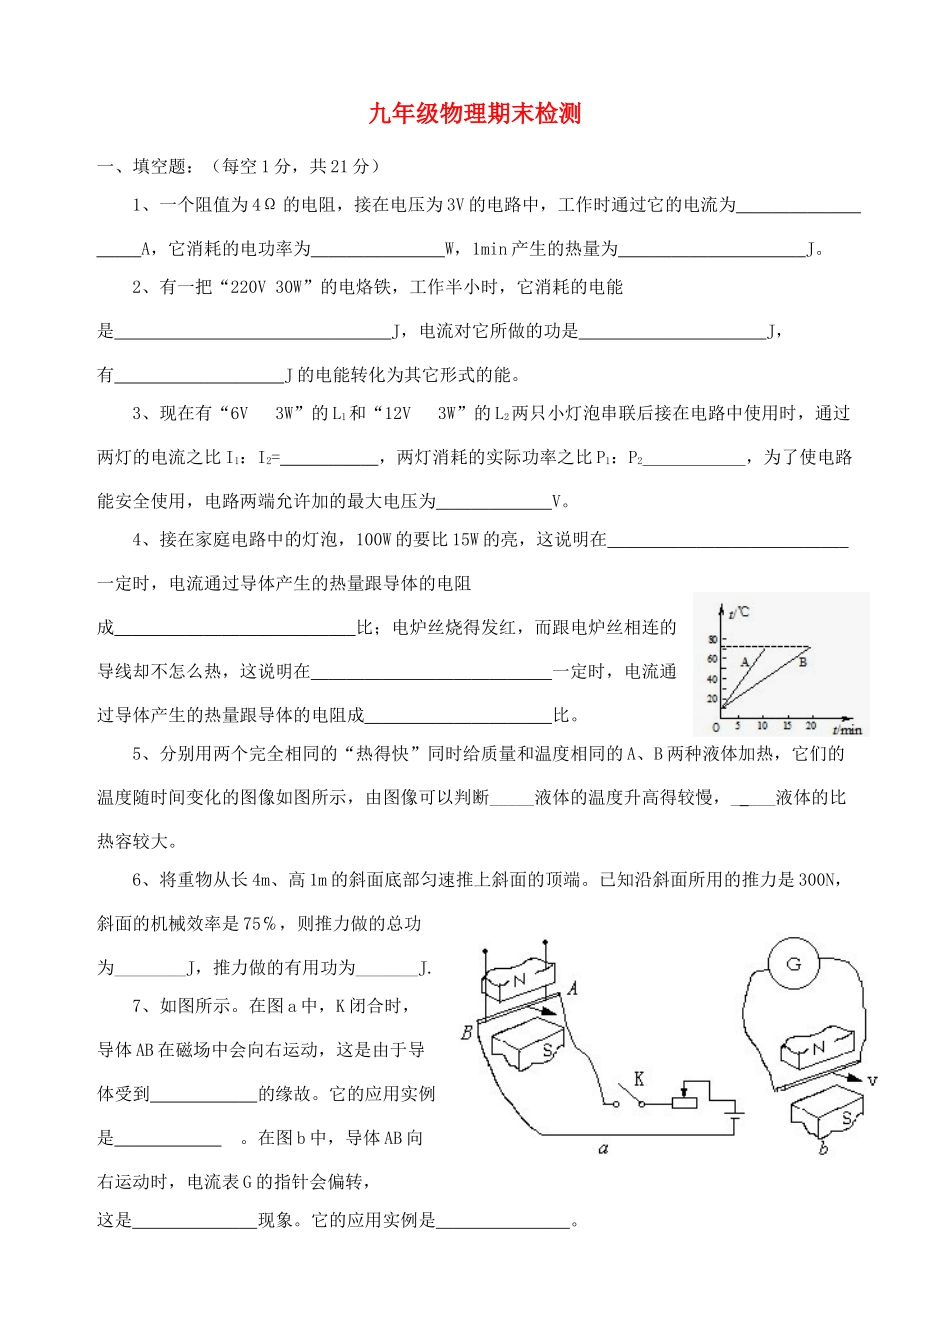 九年级物理期末检测
一、填空题：（每空 1 分，共 21 分）
1、一个阻值为 4Ω 的电阻，接在电压为 3V 的电路中，工作时通过它的电流为______________
_____A，它消耗的电功率为_______________W，1min 产生的热量为_____________________J。
2、有一把“220V 30W”的电烙铁，工作半小时，它消耗的电能
是_______________________________J，电流对它所做的功是_____________________J，
有___________________J 的电能转化为其它形式的能。
3、现在有“6V 3W”的 L₁和“12V 3W”的 L₂两只小灯泡串联后接在电路中使用时，通过
两灯的电流之比 I₁：I₂=___________，两灯消耗的实际功率之比 P₁：P₂___________，为了使电路
能安全使用，电路两端允许加的最大电压为_____________V。
4、接在家庭电路中的灯泡，100W 的要比 15W 的亮，这说明在___________________________
一定时，电流通过导体产生的热量跟导体的电阻
成___________________________比；电炉丝烧得发红，而跟电炉丝相连的
导线却不怎么热，这说明在___________________________一定时，电流通
过导体产生的热量跟导体的电阻成_____________________比。
t/℃
80
60
40
20
A B
0 5 10 15 20
t/min
5、分别用两个完全相同的“热得快”同时给质量和温度相同的 A、B 两种液体加热，它们的
温度随时间变化的图像如图所示，由图像可以判断_____液体的温度升高得较慢，_____液体的比
热容较大。
6、将重物从长 4m、高 1m 的斜面底部匀速推上斜面的顶端。已知沿斜面所用的推力是 300N，
斜面的机械效率是 75℅，则推力做的总功
为________J，推力做的有用功为_______J.
7、如图所示。在图 a 中，K 闭合时，
导体 AB 在磁场中会向右运动，这是由于导
体受到____________的缘故。它的应用实例
是____________ 。在图 b 中，导体 AB 向
右运动时，电流表 G 的指针会偏转，
这是______________现象。它的应用实例是_______________。
N
A
B
S
K
a
G
N
v
S
b